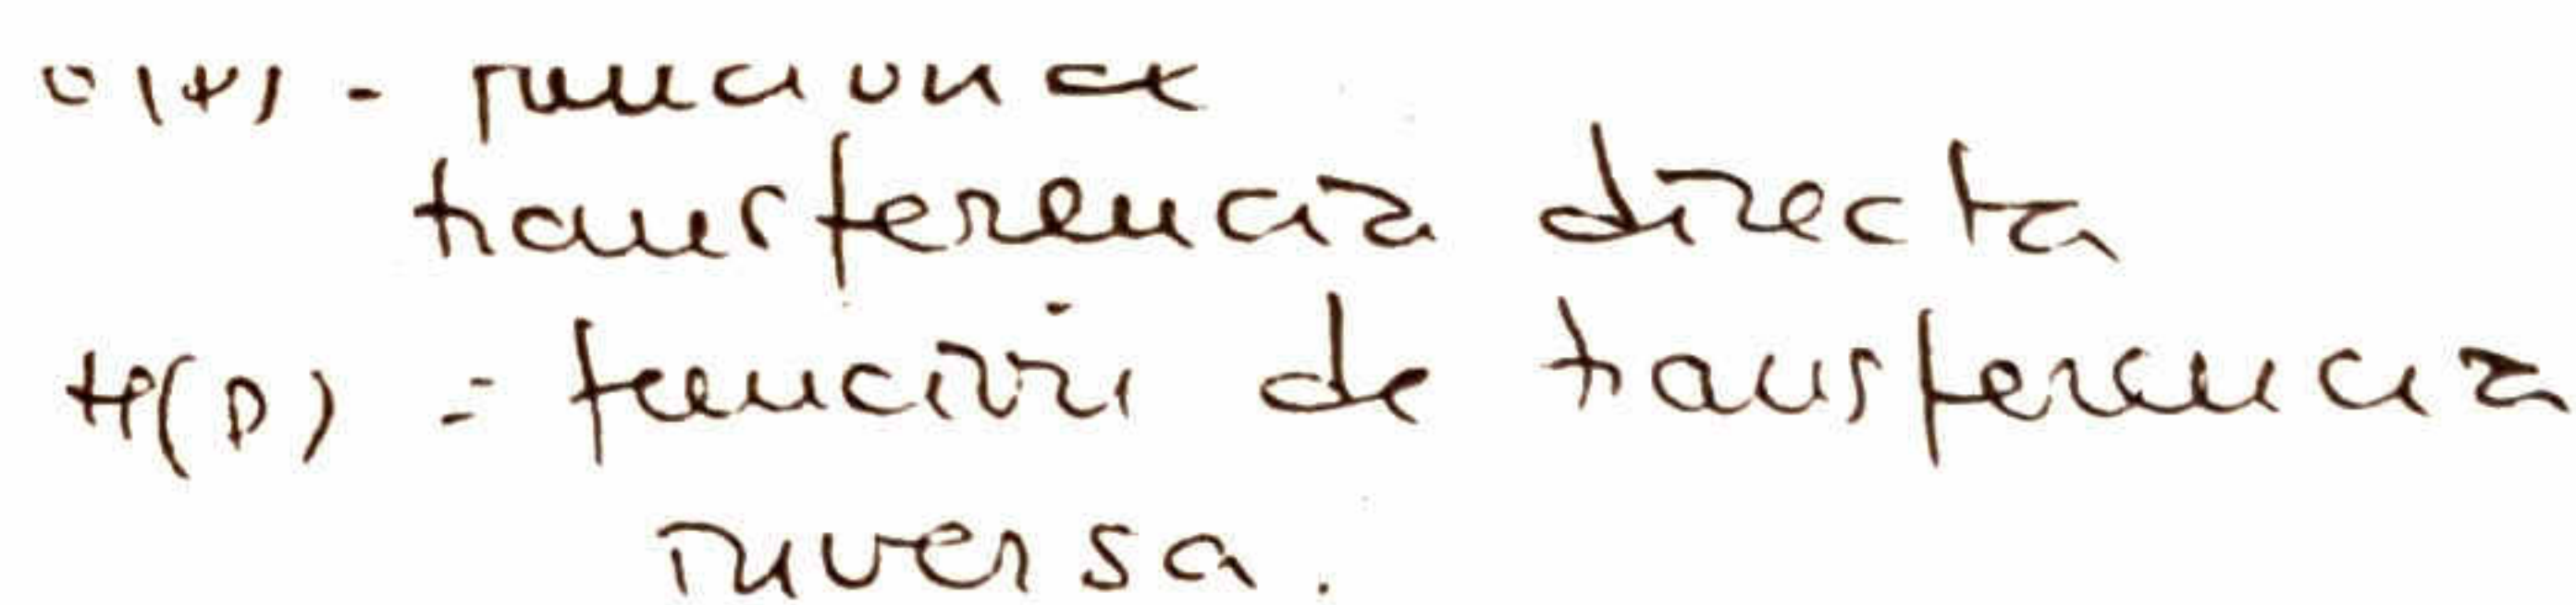 función de
transferencia directa
H(D) = función de transferencia
inversa.